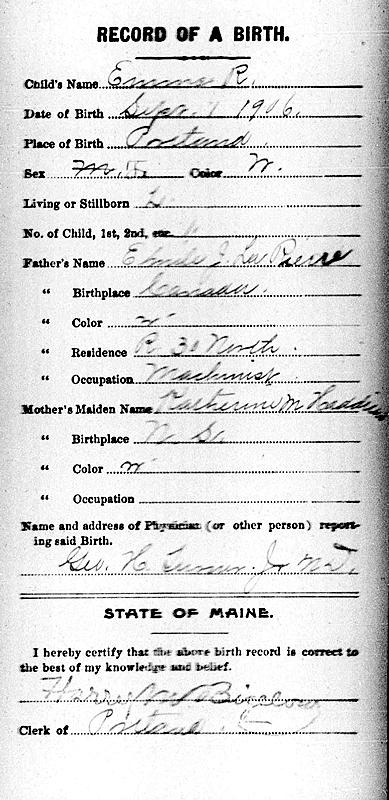 RECORD OF A BIRTH.
Child's Name Emma R.
Date of Birth Sept. 1906.
Place of Birth Portland
Sex M. F. Color W.
Living or Stillborn L.
No. of Child, 1st, 2nd, etc.
Father's Name J. La Pierre
" Birthplace Canada.
" Color W
" Residence R 30 North.
" Occupation Machinist
Mother's Maiden Name Katherine M
" Birthplace N. S.
" Color W
" Occupation
Name and address of Physician (or other person) report-
ing said Birth.
Geo. H. Jr M.D.
STATE OF MAINE.
I hereby certify that the above birth record is correct to
the best of my knowledge and belief.
Harry
Clerk of Portland